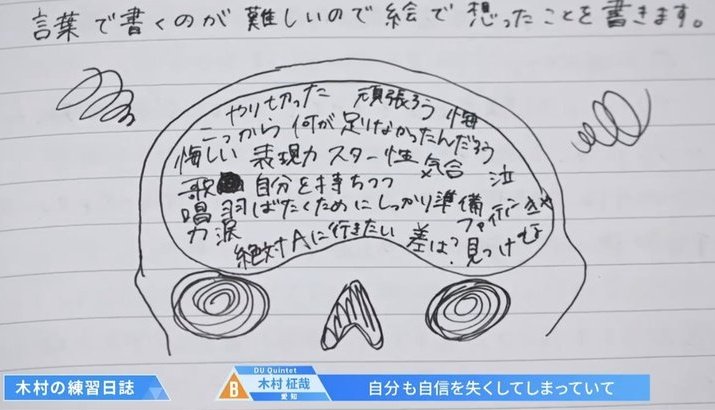 言葉で書くのが難しいので絵で想ったことを書きます。
やりきった 頑張ろう 悔
こっから何が足りなかったんだろう
悔しい 表現力 スター性 気合
歌 自分を持ちつつ 泣
唱 羽ばたくためにしっかり準備 ファイティン
力 涙
絶対Aに行きたい 差は? 見つけな
木村の練習日誌
DU Quintet
B 木村 柾哉
愛知
自分も自信を失くしてしまっていて